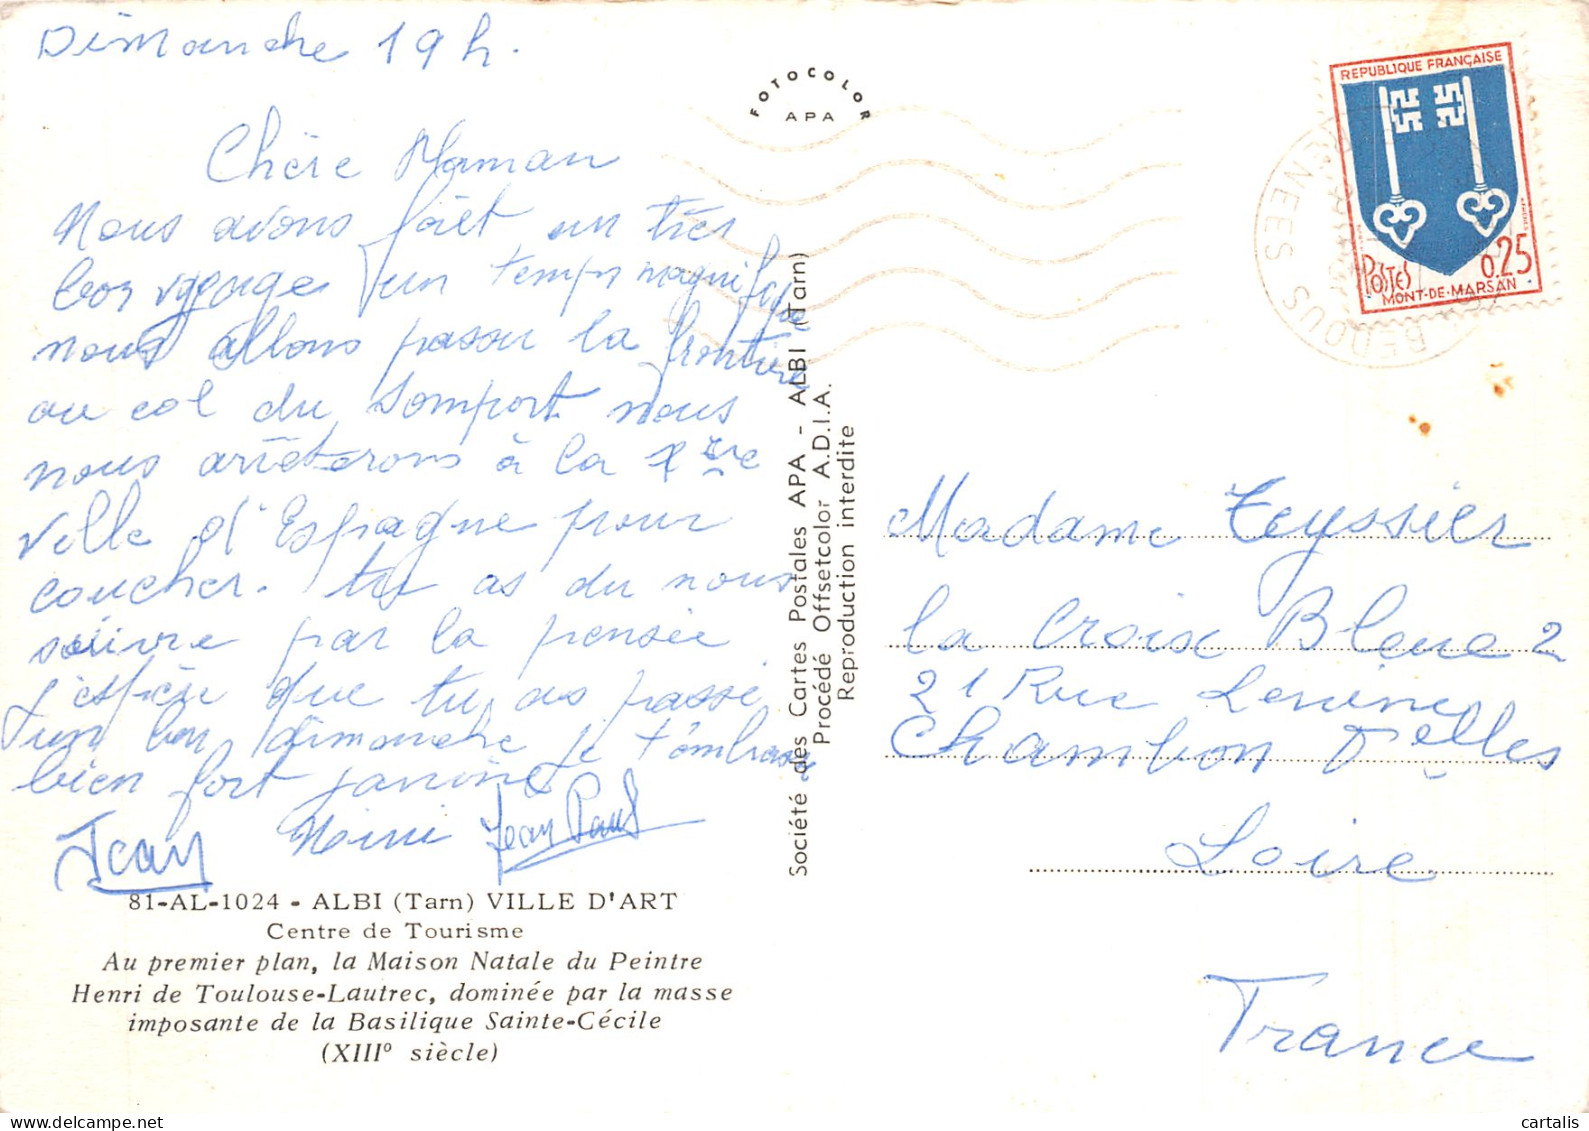 Dimanche 19 h.
Chère Maman
Nous avons fait un très
bon voyage un temps magnifique
nous allons passer la frontière
au col du Somport nous
nous arrêterons à la 1ère
ville d'Espagne pour
coucher. tu as du nous
suivre par la pensée
j'espère que tu as passé
un bon dimanche je t'embrasse
bien fort janine
Jean Mimi Jean Paul
81-AL-1024 - ALBI (Tarn) VILLE D'ART
Centre de Tourisme
Au premier plan, la Maison Natale du Peintre
Henri de Toulouse-Lautrec, dominée par la masse
imposante de la Basilique Sainte-Cécile
(XIIIº siècle)
FOTOCOLOR
APA
Société des Cartes Postales APA - ALBI (Tarn)
Procédé Offsetcolor A.D.I.A.
Reproduction interdite
REPUBLIQUE FRANÇAISE
POSTES
0,25
MONT-DE-MARSAN
BEDOUS
Madame Teyssier
la Croix Bleue 2
21 Rue Lenine
Chambon Felles
Loire
France